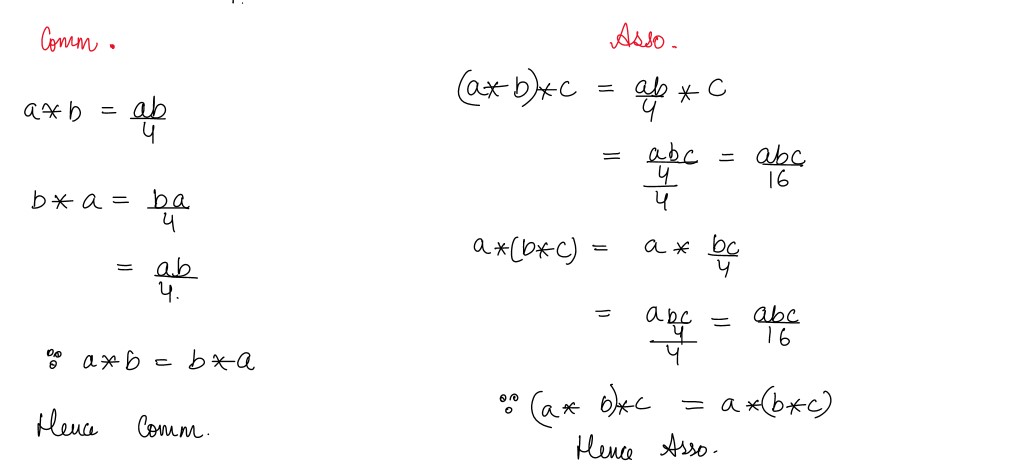 Comm.
a * b = ab/4
b * a = ba/4
= ab/4.
∵ a * b = b * a
Hence Comm.
Asso.
(a * b) * c = ab/4 * c
= (abc/4)/4 = abc/16
a * (b * c) = a * bc/4
= (abc/4)/4 = abc/16
∵ (a * b) * c = a * (b * c)
Hence Asso.